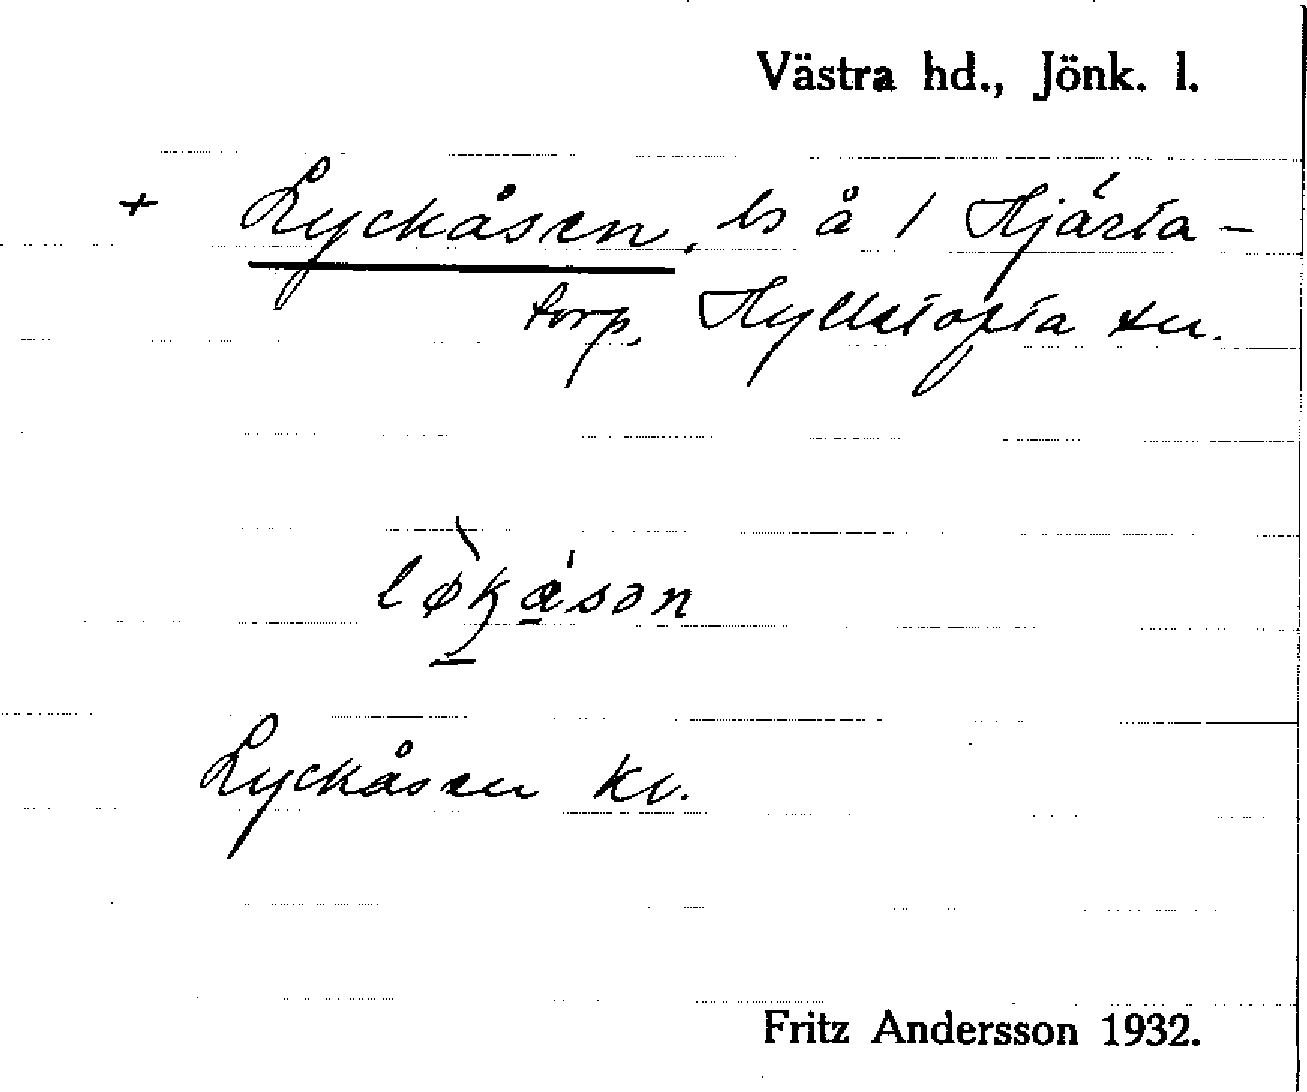 Västra hd., Jönk. l.
+ Lyckåsen, ls å 1 Hjärta-
torp, Hylletofta sn.
Lyckåsen kv.
Fritz Andersson 1932.